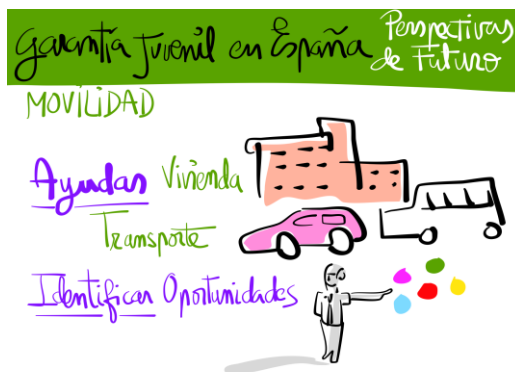 Garantía Juvenil en España
Perspectivas
de Futuro
MOVILIDAD
Ayudas Vivienda
Transporte
Identificar Oportunidades